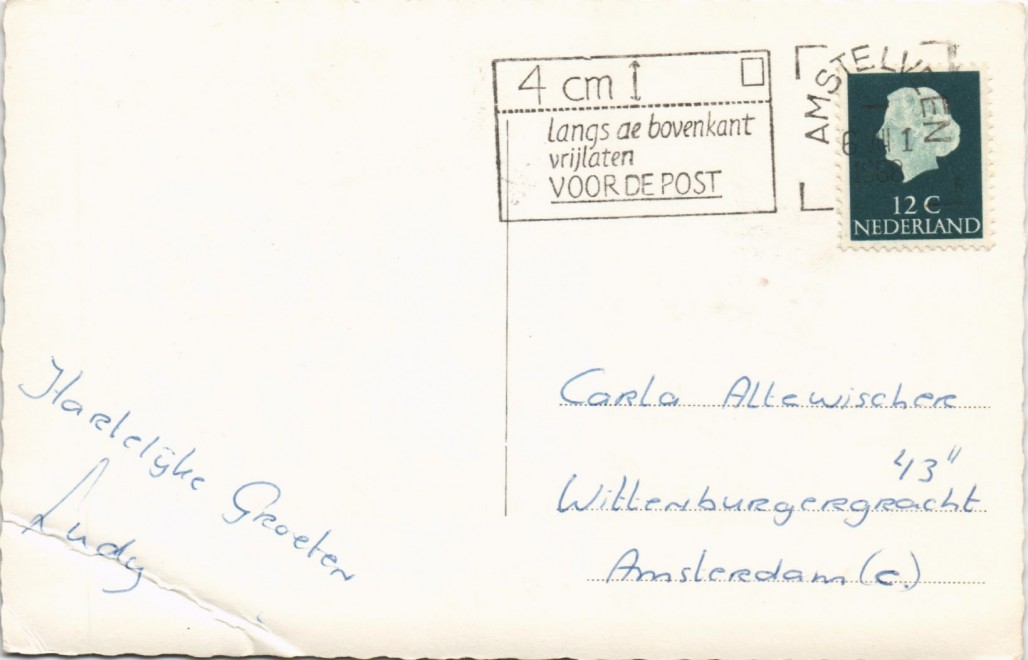 4 cm
langs de bovenkant
vrijlaten
VOOR DE POST
AMSTELVEEN
12 C
NEDERLAND
Hartelijke Groeten
Ludy
Carla Altewischer
43"
Wittenburgergracht
Amsterdam (c)